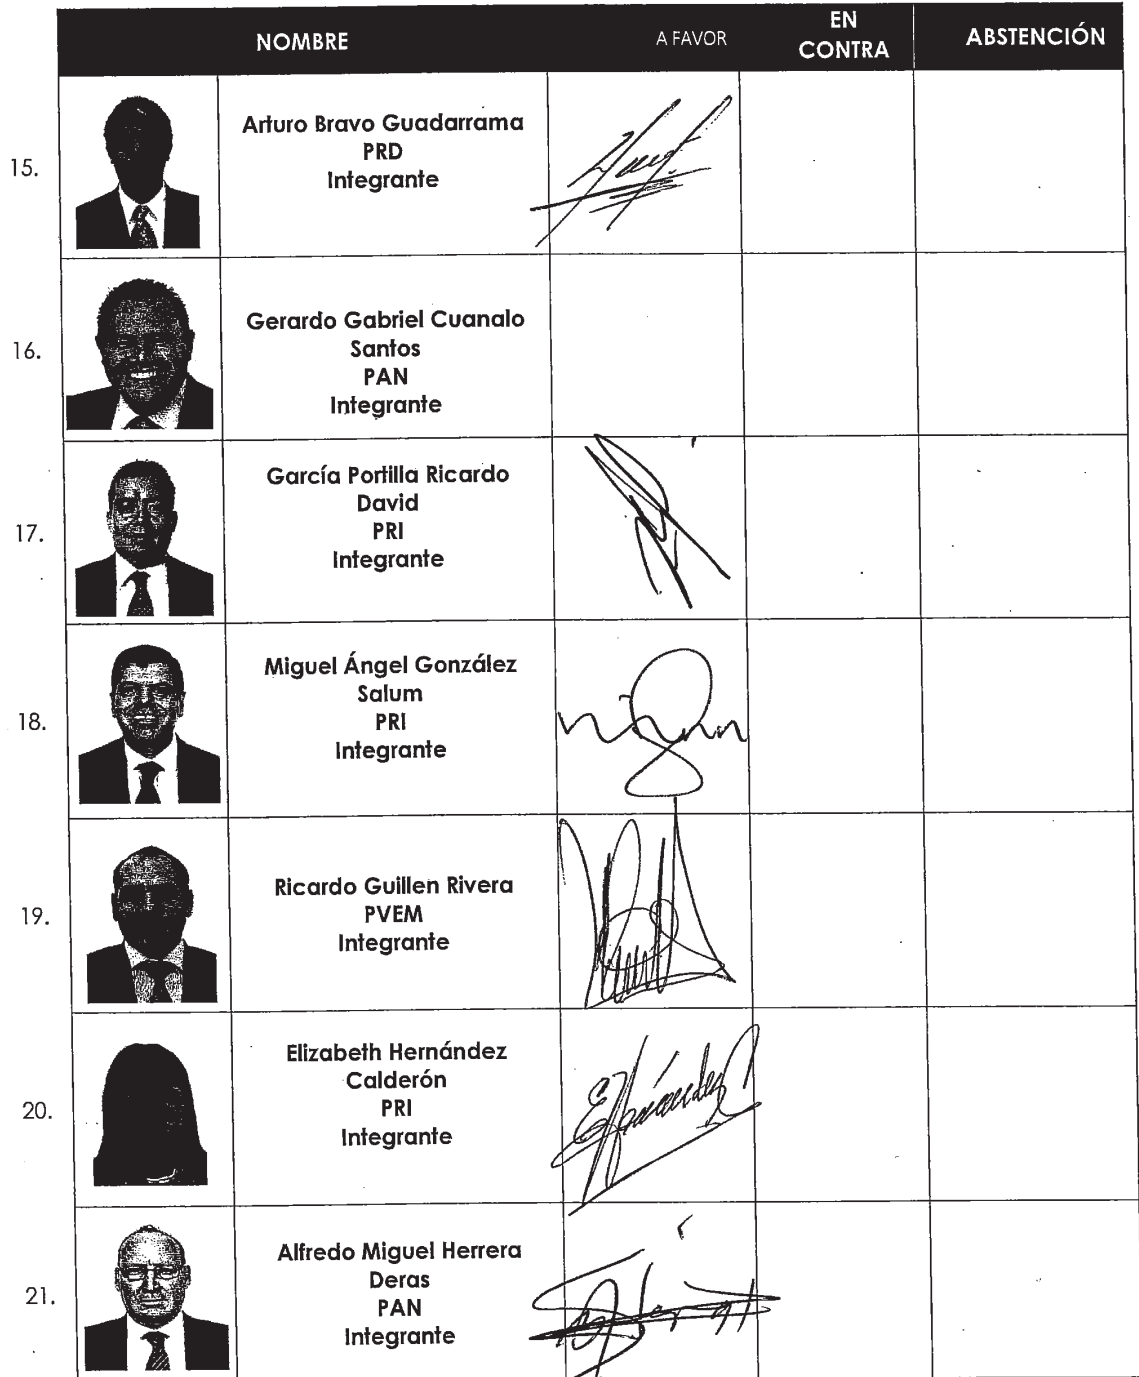 NOMBRE A FAVOR EN CONTRA ABSTENCIÓN
15.
Arturo Bravo Guadarrama
PRD
Integrante
16.
Gerardo Gabriel Cuanalo
Santos
PAN
Integrante
17.
García Portilla Ricardo
David
PRI
Integrante
18.
Miguel Ángel González
Salum
PRI
Integrante
19.
Ricardo Guillen Rivera
PVEM
Integrante
20.
Elizabeth Hernández
Calderón
PRI
Integrante
EHernández
21.
Alfredo Miguel Herrera
Deras
PAN
Integrante